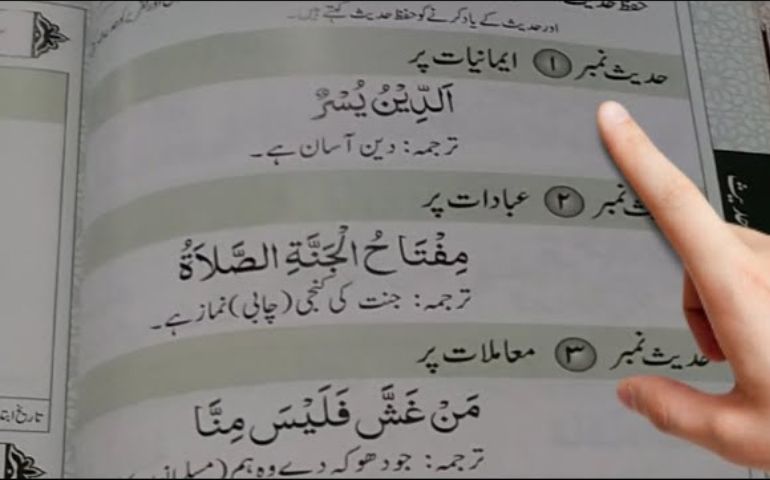 حفظ حدیث
اور حدیث کے یاد کرنے کو حفظ حدیث کہتے ہیں۔
حدیث نمبر ۱ ایمانیات پر
اَلدِّيْنُ يُسْرٌ
ترجمہ: دین آسان ہے۔
نمبر ۲ عبادات پر
مِفْتَاحُ الْجَنَّةِ الصَّلَاةُ
ترجمہ: جنت کی کنجی (چابی) نماز ہے۔
حدیث نمبر ۳ معاملات پر
مَنْ غَشَّ فَلَيْسَ مِنَّا
ترجمہ: جو دھوکہ دے وہ ہم (مسلمانوں)
حدیث
تاریخ ابتدا